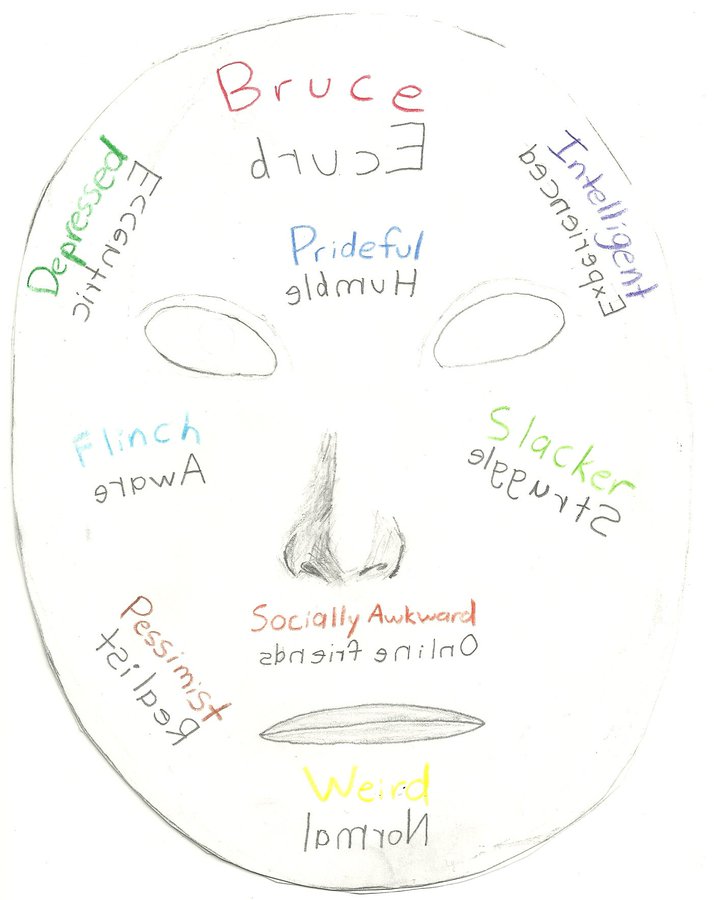 Bruce
Ecurb
Depressed
Eccentric
Intelligent
Experienced
Prideful
Humble
Flinch
Aware
Slacker
Struggle
Socially Awkward
Online friends
Pessimist
Realist
Weird
Normal